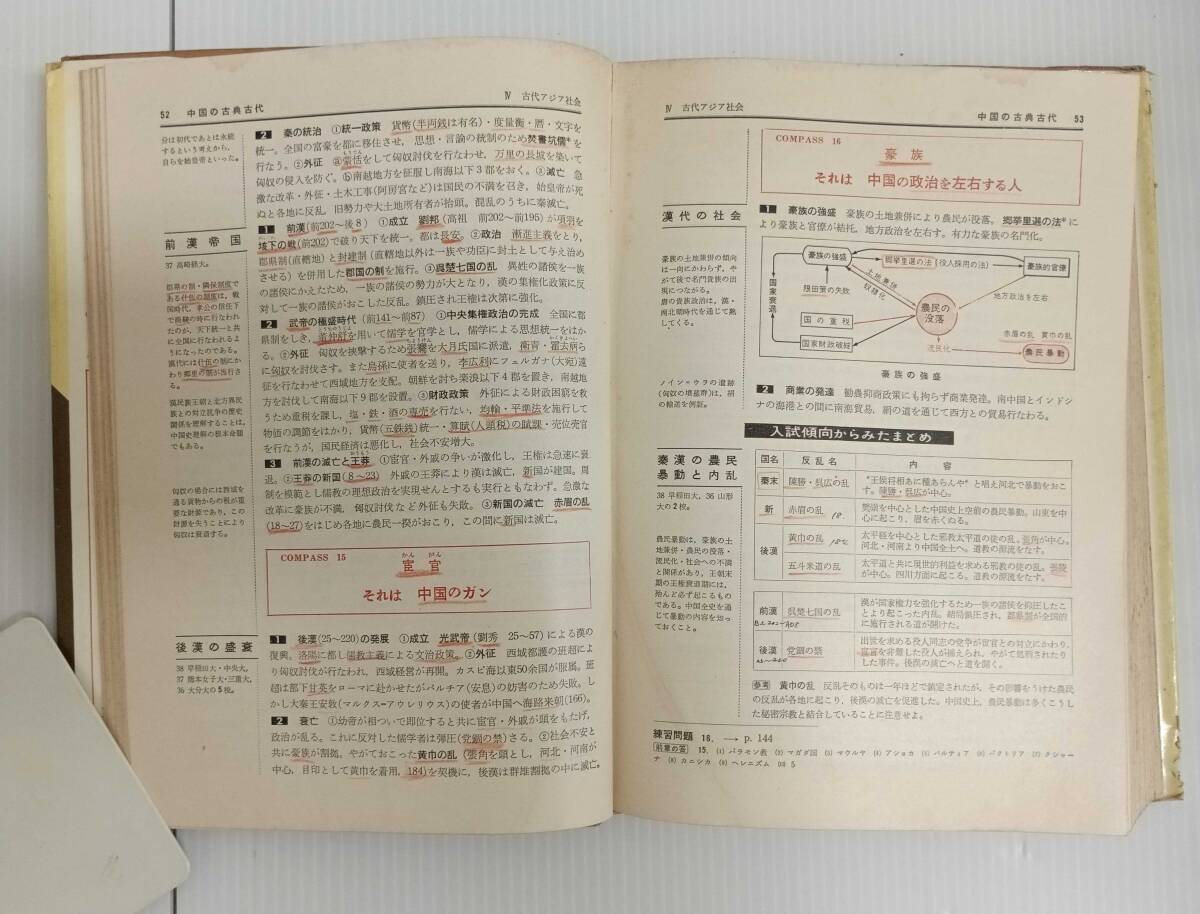 52 中国の古典古代
Ⅳ 古代アジア社会
分は初代であとは永続
するという考えから,
自らを始皇帝といった。
2 秦の統治 ①統一政策 貨幣(半両銭は有名)・度量衡・暦・文字を
統一。全国の富豪を都に移住させ,思想・言論の統制のため焚書坑儒*を
行なう。②外征 ⓐ蒙恬をして匈奴討伐を行なわせ,万里の長城を築いて
匈奴の侵入を防ぐ。ⓑ南越地方を征服し南海以下3郡をおく。③滅亡 急
激な改革・外征・土木工事(阿房宮など)は国民の不満を召き,始皇帝が死
ぬと各地に反乱,旧勢力や大土地所有者が抬頭。混乱のうちに秦滅亡。
前漢帝国
37 高崎経大。
郡県の制・隣保制度で
ある什伍の制度は,戦
国時代,孝公の信任下
で商鞅の時に行なわれ
たのが,天下統一と共
に全国に行なわれるよ
うになったのである。
漢代には什伍の制にか
わり郷里の制が施行さ
れる。
漢民族王朝と北方異民
族との対立抗争の歴史
関係を理解することは,
中国史理解の根本命題
でもある。
匈奴の場合には西域を
通る貨物からの税が重
要な財源であり,この
財源を失うことにより
匈奴は衰退する。
1 前漢(前202〜後8) ①成立 劉邦(高祖 前202〜前195)が項羽を
垓下の戦(前202)で破り天下を統一。都は長安。②政治 漸進主義をとり,
郡県制(直轄地)と封建制(直轄地以外は一族や功臣に封土として与え治め
させる)を併用した郡国の制を施行。③呉楚七国の乱 異姓の諸侯を一族
の諸侯にかえたため,一族の諸侯の勢力が大となり,漢の集権化政策に反
対して一族の諸侯がおこした反乱。鎮圧され王権は次第に強化。
2 武帝の極盛時代(前141〜前87) ①中央集権政治の完成 全国に郡
県制をしき,董仲舒を用いて儒学を官学とし,儒学による思想統一をはか
る。②外征 匈奴を挟撃するため張騫を大月氏国に派遣,衛青・霍去病ら
に匈奴を討伐さす。また烏孫に使者を送り,李広利にフェルガナ(大宛)遠
征を行なわせて西域地方を支配。朝鮮を討ち楽浪以下4郡を置き,南越地
方を討伐して南海以下9郡を設置。③財政政策 外征による財政困窮を救
うため重税を課し,塩・鉄・酒の専売を行ない,均輸・平準法を施行して
物価の調節をはかり,貨幣(五銖銭)統一・算賦(人頭税)の賦課・売位売官
を行なうが,国民経済は悪化し,社会不安増大。
3 前漢の滅亡と王莽 ①宦官・外戚の争いが激化し,王権は急速に衰
退。②王莽の新国(8〜23) 外戚の王莽により漢は滅亡,新国が建国。周
制を模範とし儒教の理想政治を実現せんとするも実行ともなわず。急激な
改革に豪族が不満,匈奴伐など外征も失敗。③新国の滅亡 赤眉の乱
(18〜27)をはじめ各地に農民一揆がおこり,この間に新国は滅亡。
COMPASS 15
かん がん
宦 官
それは 中国のガン
後漢の盛衰
38 早稲田大・中央大,
37 熊本女子大・三重大,
36 大分大の5校。
1 後漢(25〜220)の発展 ①成立 光武帝(劉秀 25〜57)による漢の
復興。洛陽に都し儒教主義による文治政策。②外征 西域都護の班超によ
り匈奴討伐が行なわれ,西域経営が再開。カスピ海以東50余国が服属。班
超は部下甘英をローマに赴かせたがパルチア(安息)の妨害のため失敗。し
かし大秦王安敦(マルクス=アウレリウス)の使者が中国へ海路来朝(166)。
2 衰亡 ①幼帝が相ついで即位すると共に宦官・外戚が頭をもたげ,
政治が乱る。これに反対した儒学者は弾圧(党錮の禁)さる。②社会不安と
共に豪族が割拠,やがておこった黄巾の乱(張角を頭とし,河北・河南が
中心,目印として黄巾を着用,184)を契機に,後漢は群雄割拠の中に滅亡。
Ⅳ 古代アジア社会
中国の古典古代 53
COMPASS 16
豪 族
それは 中国の政治を左右する人
漢代の社会
豪族の土地兼併の傾向
は一向にかわらず,や
がて後で名門貴族の出
現につながる。
唐の貴族政治は,漢・
南北朝時代を通じて熟
してくる。
ノイン=ウラの遺跡
(匈奴の墳墓群)は,絹
の輸送を例証。
1 豪族の強盛 豪族の土地兼併により農民が没落。郷挙里選の法*に
より豪族と官僚が結托,地方政治を左右す。有力な豪族の名門化。
豪族の強盛
郷挙里選の法(役人採用の法)
豪族的官僚
限田策の失敗
土地兼併
奴隷化
国家衰退
農民の
没落
地方政治を左右
国の重税
国家財政破綻
流民化
赤眉の乱 黄巾の乱
農民暴動
豪族の強盛
2 商業の発達 勧農抑商政策にも拘らず商業発達。南中国とインドシ
ナの海港との間に南海貿易,絹の道を通じて西方との貿易行なわる。
入試傾向からみたまとめ
秦漢の農民
暴動と内乱
38 早稲田大,36 山形
大の2校。
農民暴動は,豪族の土
地兼併・農民の没落・
流民化・社会への不満
と関係があり,王朝末
期の王権衰退期には,
殆んど必ず起こるもの
である。中国全史を通
じて暴動の内容を知っ
ておくこと。
国名 反乱名 内容
秦末 陳勝・呉広の乱 “王侯将相あに種あらんや”と唱え河北で暴動をおこ
す。陳勝・呉広が中心。
新 赤眉の乱 18 樊崇を中心とした中国史上空前の農民暴動。山東を中
心に起こり,眉を赤くぬる。
後漢 黄巾の乱 184 太平道を中心とした邪教太平道の徒の乱。張角が中心。
河北・河南より中国全土へ。道教の源流をなす。
五斗米道の乱 太平道と共に現世的利益を求める邪教の徒の乱。張陵
が中心。四川方面に起こる。道教の源流をなす。
前漢 呉楚七国の乱 漢が国家権力を強化するため一族の諸侯を抑圧したこ
とより起こった内乱。結局鎮圧され,郡県制が全国的
に施行される道が開けた。
後漢 党錮の禁 出世を求める役人同志の党争が宦官との対立にかわり,
宦官を非難した役人が捕えられ,やがて処罰されたり
した事件。後漢の滅亡へと道を開く。
参考 黄巾の乱 反乱そのものは一年ほどで鎮定されたが,その影響をうけた農民
の反乱が各地に起こり,後漢の滅亡を促進した。中国史上,農民暴動は多くこうし
た秘密宗教と結合していることに注意せよ。
練習問題 18. → p. 144
前章の答 15. (1) バラモン教 (2) マガダ国 (3) マウルヤ (4) アショカ (5) パルティア (6) バクトリア (7) クシャー
ナ (8) カニシカ (9) ヘレニズム